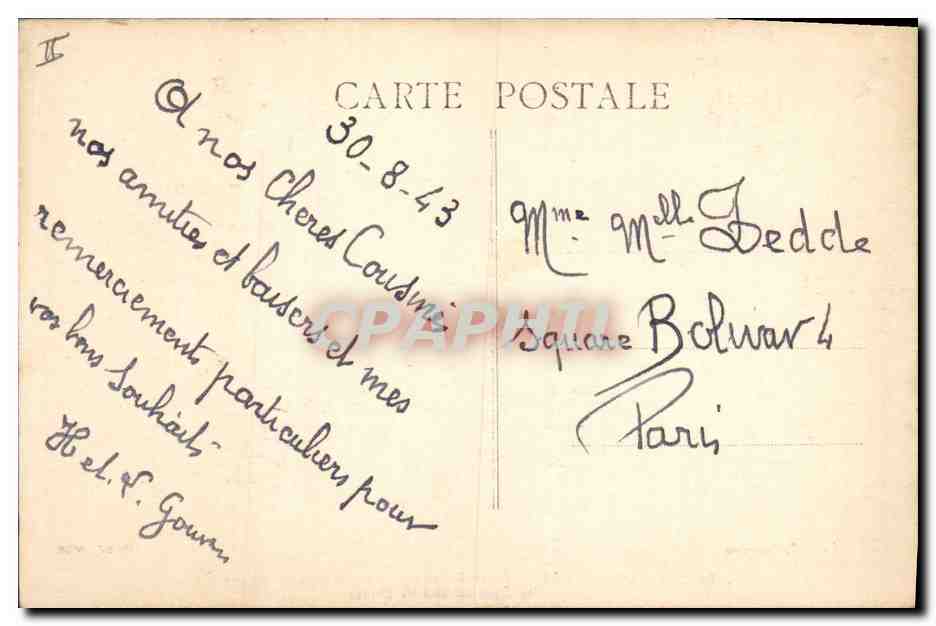 II
CARTE POSTALE
30-8-43
A nos Cheres Cousines
nos amities et baisers et mes
remerciements particuliers pour
vos bons souhaits
H et. L. Gouv
Mme Melle Dedde
Square Bolivar 4
Paris
CPAPHIL